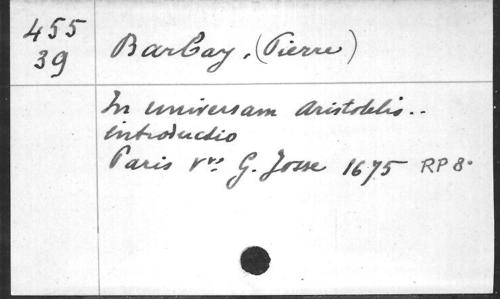 455
39
Barbay, (Pierre)
In universam Aristotelis..
introductio
Paris Vve G. Josse 1675 RP 8°